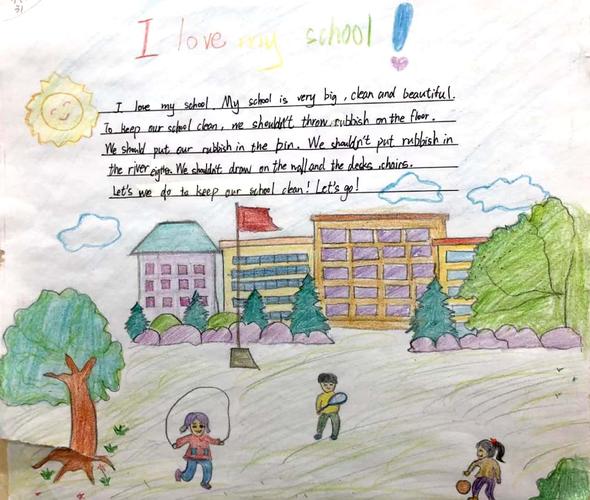 31
I love my school!
I love my school. My school is very big, clean and beautiful.
To keep our school clean, we shouldn't throw rubbish on the floor.
We should put our rubbish in the bin. We shouldn't put rubbish in
the river eigther. We shouldn't draw on the wall and the desks, chairs.
Let's we do to keep our school clean! Let's go!